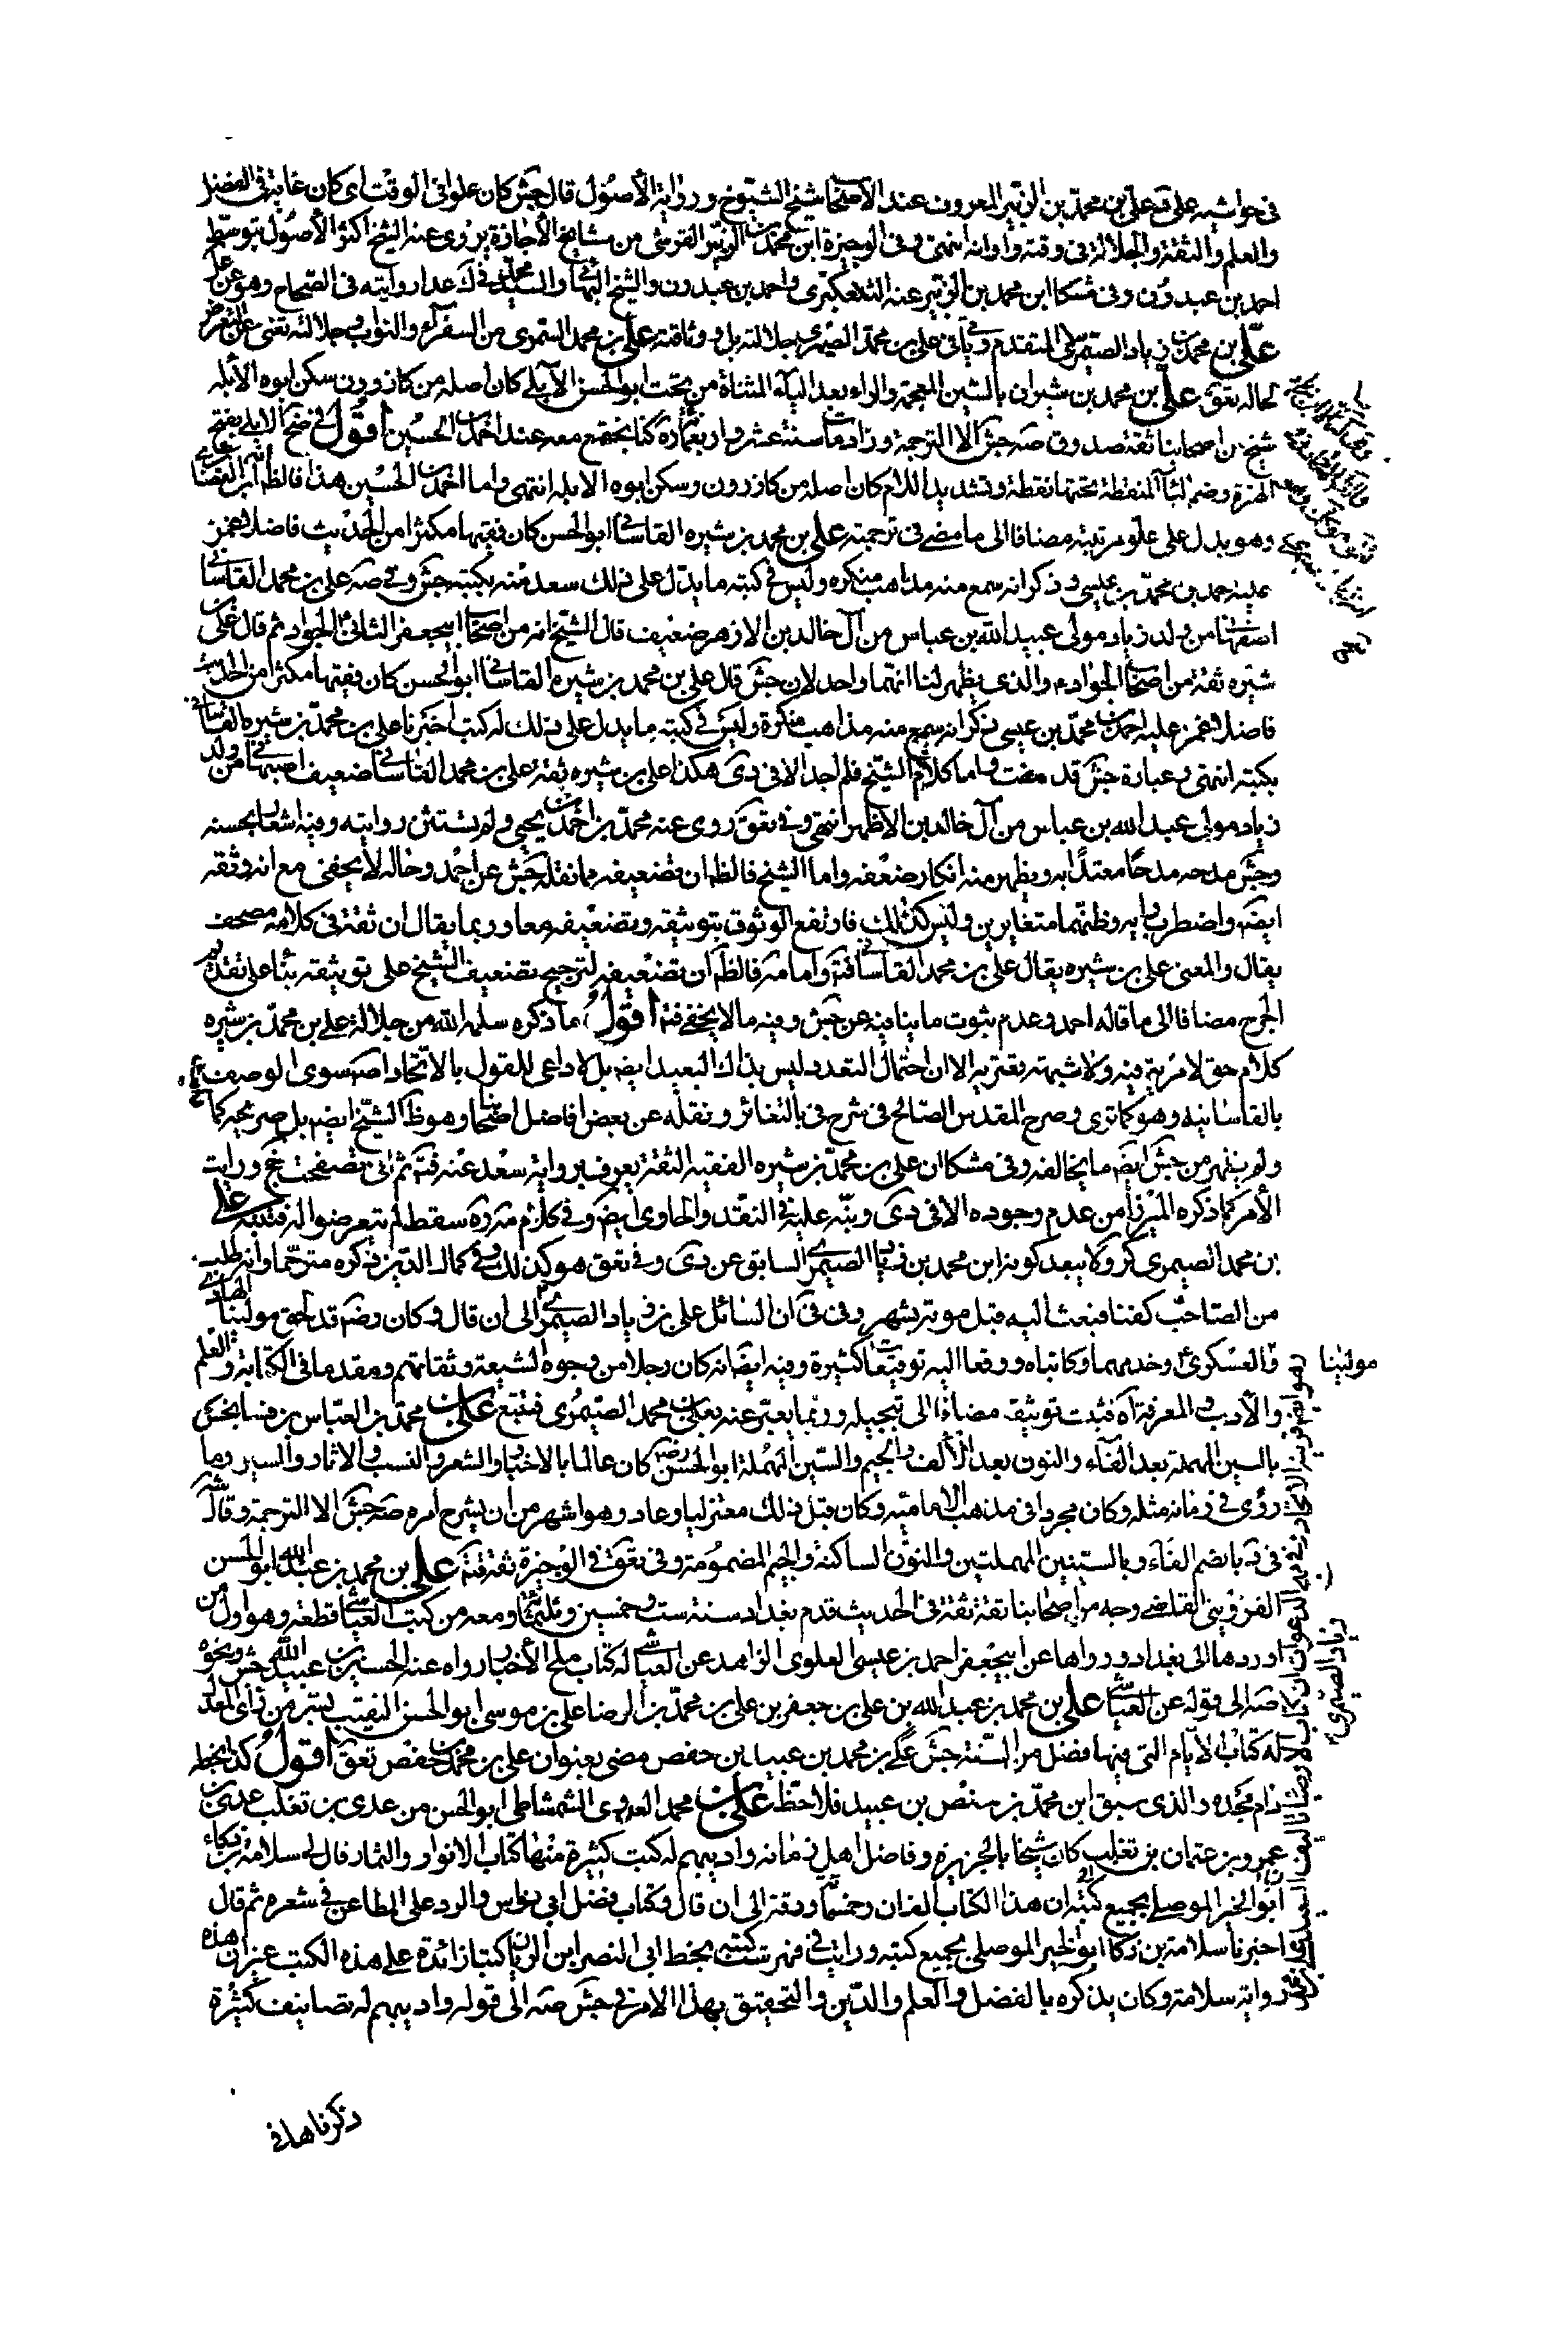 في حواشيه على تعق علي بن محمد بن الزبير المعروف عند الأصحاب شيخ الشيوخ ورواية الأصول قال جش كان علوا في الوقت اي كان غاية في الفضل
والعلم والثقة والجلالة في وقته واوانه انتهى وفي الوجيزة ابن محمد بن الزبير القرشي من مشايخ الأجازة يروي عنه الشيخ اكثر الأصول بتوسط
احمد بن عبدون وفي مشكا ابن محمد بن الزبير عنه التلعكبري واحمد بن عبدون والشيخ البهائي والسيد محمد في ك عدا روايته في الصحاح وهو
علي بن محمد بن زياد الصيمري المتقدم ويأتي في علي بن محمد الصيمري جلالته بل ووثاقته علي بن محمد السمري من السفرآء والنواب وجلالته تغنى عن التعرض
لحاله تعق علي بن محمد بن شيران بالشين المعجمة والراء بعد الياء المثناة من تحت ابو الحسن الأبلي كان اصله من كازرون سكن ابوه الأبله
شيخ من اصحابنا ثقة صدوق صه جش الا الترجمة وزاد مات سنة عشر واربعمائة كنا نجتمع معه عند احمد بن الحسين اقول في ضح الابلي بفتح
الهمزة وضم الباء المنقطة تحتها نقطة وتشديد اللام كان اصله من كازرون وسكن ابوه الابله انتهى واما احمد بن الحسين هذا فالظاهر ابن الغضائري
وهو يدل على علو مرتبته مضافا الى ما مضى في ترجمته علي بن محمد بن شيره القاساني ابو الحسن كان فقيها مكثرا من الحديث فاضلا غمز
عليه احمد بن محمد بن عيسى وذكر انه سمع منه مذاهب منكره وليس في كتبه ما يدل على ذلك سعد عنه بكتبه جش وفي صه علي بن محمد القاساني
اصفهاني من ولد زياد مولى عبيد الله بن عباس من آل خالد بن الازهر ضعيف قال الشيخ انه من اصحاب ابي جعفر الثاني الجواد ثم قال علي بن
شيره ثقة من اصحاب الجواد والذي يظهر لنا انهما واحد لان جش قال علي بن محمد بن شيره القاساني ابو الحسن كان فقيها مكثرا من الحديث
فاضلا غمز عليه احمد بن محمد بن عيسى ذكر انه سمع منه مذاهب منكرة وليس في كتبه ما يدل على ذلك له كتب اخبرنا علي بن محمد بن شيره القاساني
بكتبه انتهى وعبارة جش قد مضت واما كلام الشيخ فلم اجد الا في دي هكذا علي بن شيره ثقة علي بن محمد القاساني ضعيف اصبهاني من ولد
زياد مولى عبد الله بن عباس من آل خالد بن الاظهر انتهى وفي تعق روى عنه محمد بن احمد بن يحيى ولم تستثن روايته وفيه اشعار بحسنه
وجش مدحه مدحا معتدا به ويظهر منه انكار ضعفه واما الشيخ فالظ ان تضعيفه مما نقله جش عن احمد وحاله لا يخفى مع انه وثقه
ايضه واضطرب رايه وظنهما متغايرين وليس كذلك فارتفع الوثوق بتوثيقه وتضعيفه معا وربما يقال ان ثقة في كلامه مصحف
يقال والمعنى علي بن شيره يقال علي بن محمد القاساني فتأمل وامامه فالظ ان تضعيفه لترجيح تضعيف الشيخ على توثيقه بناء على تقدم
الجرح مضافا الى ما قاله احمد وعدم ثبوت ما ينافيه عن جش وفيه ما لا يخفى فتم اقول ما ذكره سلمه الله من جلالة علي بن محمد بن شيره
كلام حق لا مرية فيه ولا شبهة تعتريه الا ان احتمال التعدد ليس بذاك البعيد ايضه بل لا داعي للقول بالاتحاد اصه سوى الوصف
بالقاسانيه وهو كما ترى وصرح المقدس الصالح في شرح في بالتغائر ونقله عن بعض افاضل اصحابنا وهو ظ الشيخ ايضه بل صريحه كما
ولم يظهر من جش ايضه ما يخالفه وفي مشكا ان علي بن محمد بن شيره الفقيه الثقة يعرف برواية سعد عنه فتم ثم اني تصفحت جخ ورايت
الأمر كما ذكره الميرزا من عدم وجوده الا في دي ونبه عليه في النقد والحاوي ايضه وفي كلام سقط لم يتعرضوا له فتنبه علي
بن محمد الصيمري كر ولا يبعد كونه ابن محمد بن زياد الصيمري السابق عن دي وفي تعق هو كذلك وفي كمال الدين ذكره مترحما وانه طلب
من الصاحب كفنا فبعث اليه قبل موته بشهر وفي في ان السائل علي بن زياد الصيمري الى ان قال وكان رضه قد لحق مولينا الهادي
والعسكري وخدمهما وكاتباه ووقعا اليه توقيعات كثيرة وفيه ايضا انه كان رجلا من وجوه الشيعة وثقاتهم ومقدما في الكتابة والعلم
والأدب والمعرفة آه فثبت توثيقه مضافا الى تبجيله وربما يعبر عنه بعلي بن محمد الصيمري فتتبع علي بن محمد بن العباس بن فسانجس
بالسين المهملة بعد الفاء والنون بعد الألف والجيم والسين المهملة ابو الحسن رضه كان عالما بالاخبار والشعر والنسب والاثار والسير وما
رؤي في زمانه مثله وكان مجردا في مذهب الاماميه وكان قبل ذلك معتزليا وعاد وهو اشهر من ان يشرح امره صه جش الا الترجمة وقال
في د بالضم الفاء وبالسينين المهملتين والنون الساكنة والجيم المضمومة وفي تعق في الوجيزة ثقة فتم علي بن محمد بن عبد الله ابو الحسن
القزويني القاضي وجه من اصحابنا ثقة ثقة في الحديث قدم بغداد سنة ست وخمسين وثلثمائة ومعه من كتب العياشي قطعة وهو اول من
اوردها الى بغداد ورواها عن ابي جعفر احمد بن عيسى العلوي الزاهد عن العياشي له كتاب ملح الأخبار رواه عنه الحسين بن عبيد الله جش ونحوه
صه الى قوله عن العياشي علي بن محمد بن عبد الله بن علي بن جعفر بن علي بن محمد بن الرضا علي بن موسى ابو الحسن النقيب بسر من رأى المعدل
له كتاب الايام التي فيها فضل من السنة جش علي بن محمد بن عبيد بن حفص مضى بعنوان علي بن محمد بن حفص تعق اقول كذا بخطه
دام مجده والذي سبق ابن محمد بن حفص بن عبيد فلاحظ علي بن محمد العدوي الشمشاطي ابو الحسن من عدي بن تغلب عدي بن
عمرو بن عثمان بن تغلب كان شيخا بالجزيرة وفاضل اهل زمانه واديبهم له كتب كثيرة منها كتاب الانوار والثمار قال لي سلامة بن ذكاء
ابو الخير الموصلي بجميع كتبه ان هذا الكتاب الفان وخمسمائة ورقة الى ان قال وكتاب فضل ابي نواس والرد على الطاعن في شعره ثم قال
اخبرنا سلامة بن ذكا ابو الخير الموصلي بجميع كتبه ورايت في فهرست كتبه بخط ابي النصر ابن الريان كتبا زائدة على هذه الكتب غير ان هذه
رواية سلامة وكان يذكره بالفضل والعلم والدين والتحقيق بهذا الامر في جش صه الى قوله واديبهم له تصانيف كثيرة
مولينا
زياد الصيمري
ذكرناها في